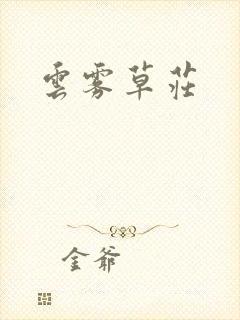 雲雾草莊
金爺